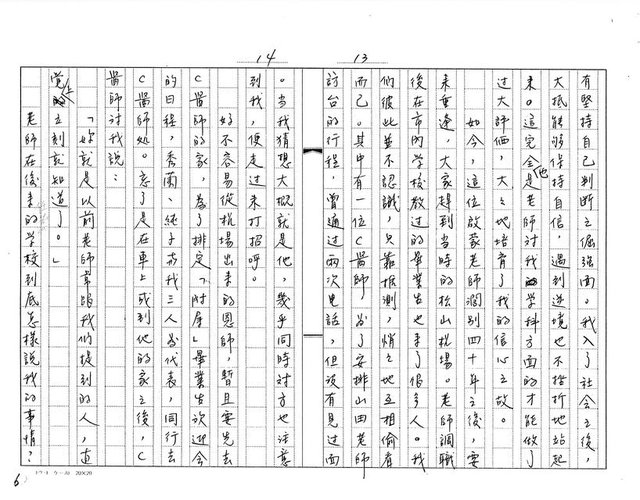 14
13
有堅持自己判斷之倔強面。我入了社會之後,
大抵能够保持自信,遇到逆境也不挫折地站起
來。這完全是他老師對我學科方面的才能做了
過大評価,大大地培育了我的信心之故。
如今,這位啟蒙老師濶別四十年之後,要
來臺邊,大家趕到當時的松山機場。老師調職
後在市內學校教过的畢業生也来了很多人。我
們彼此並不認識,只靠推測,悄悄地互相偷看
而己。其中有一位C醫師,為了安排山田老師
訪台的行程,曾通过兩次電話,但沒有見过面
。當我猜想大概就是他,幾乎同時对方也注意
到我,便走过来打招呼。
好不容易從机場出来的恩師,暫且要先去
C醫師的家,為了排定「附屬」畢業生欢迎会
的日程,秀蘭、純子和我三人為代表,同行去
C醫師処。忘了是在車上或到他的家之後,C
醫師对我說:
「妳就是以前老師常跟我們提到的人,直
覺上立刻就知道了。」
老師在後来的学校到底怎樣說我的事情?
6
20×20